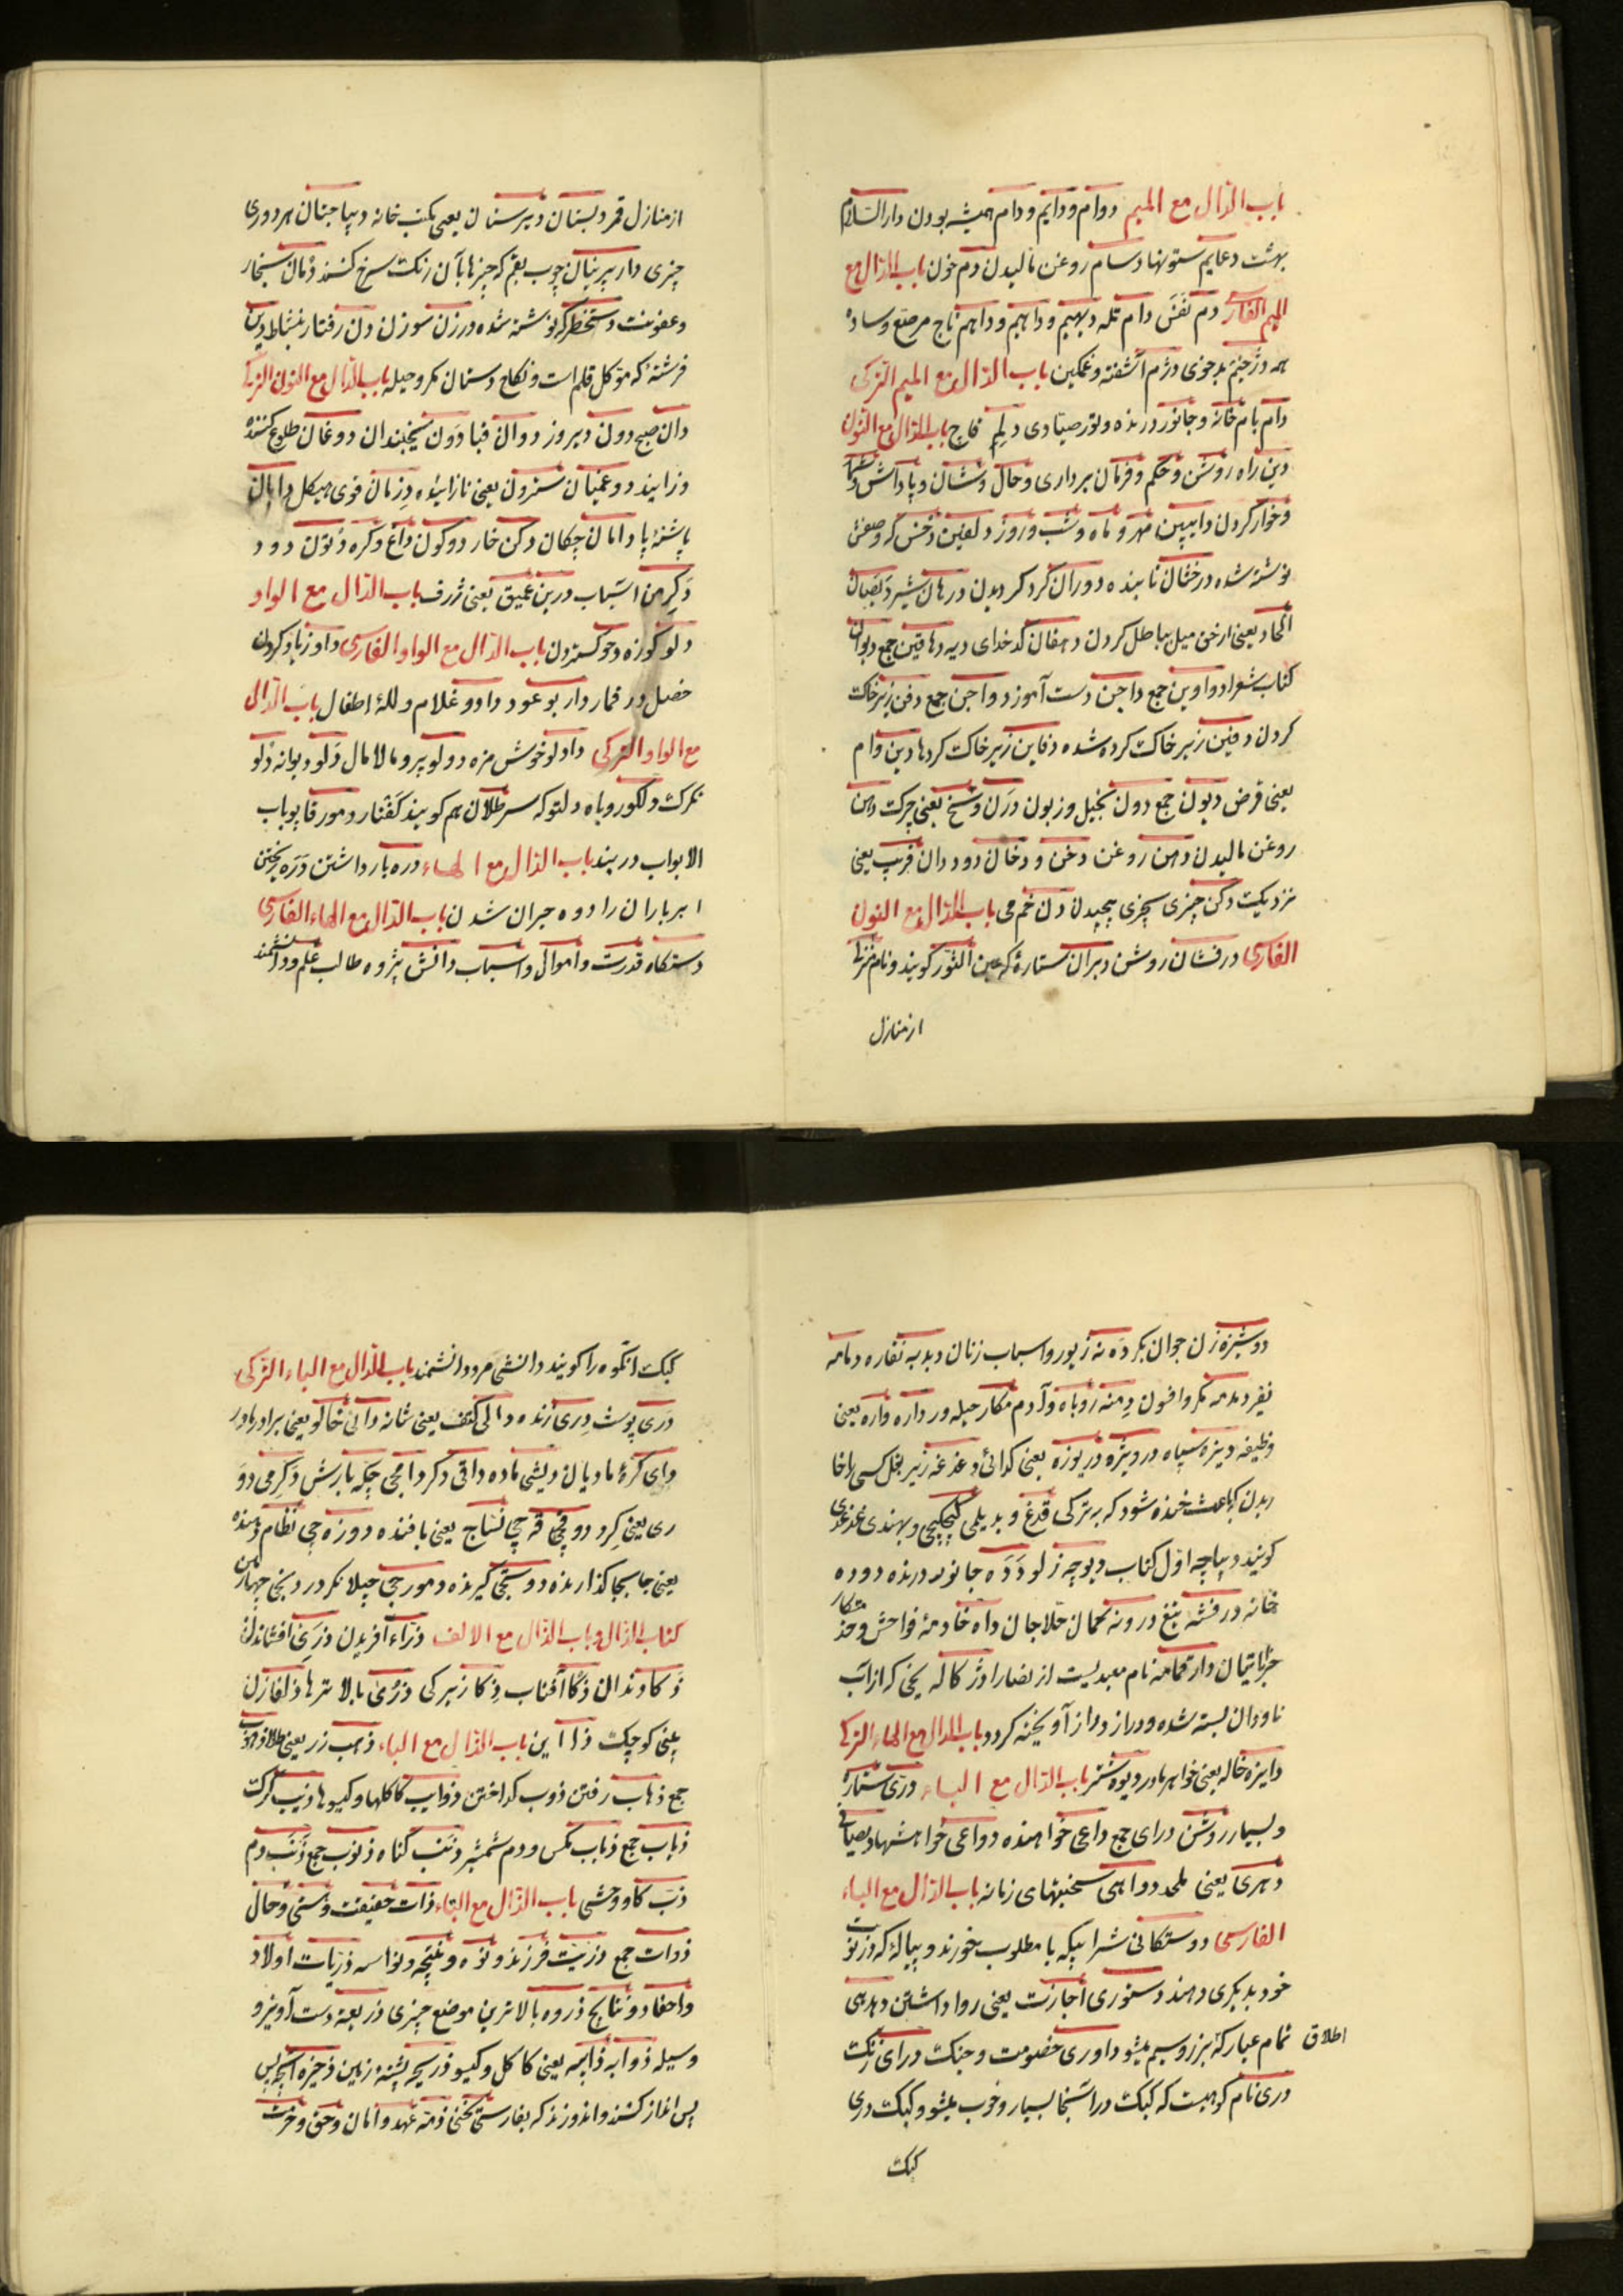 باب الدّال مع المیم دوام و دایم و دام همیشه بودن دار السّلام
بهشت دعایم ستونها دسام روغن مالیدن دم خون باب الدّال مع
المیم الفارسی دم نفس دام تله دیهیم و داهیم و داهم تاج مرصّع و ساده
دژخیم بدخوی دژم آشفته و غمکین باب الدّال مع المیم الترکی
دام بام خانه و جانور درنده و تور صیّادی دلم باب الدّال مع النّون
دین راه روشن و حکم و فرمان برداری و حال و شان و پاداش
و خوار کردن دایبین مهر و ماه و شب و روز دلفین
نوشته شده درخشان تابنده دوران کرد کردیدن درهان شیر
الحاد یعنی از حق میل بباطل کردن دهقان کدخدای دیه دهاقین جمع دیوان
کتاب شعرا دواوین جمع داجن دست آموز دواجن جمع دفن زیر خاک
کردن دفین زیر خاک کرده شده دفاین زیر خاک کردها دین وام
یعنی قرض دیون جمع دون بخیل و زبون درن وسخ یعنی چرک دهن
روغن مالیدن دهن روغن دخن و دخان دود دان قریب یعنی
نزدیک دکن چیزی بچیزی پیچیدن دن خم می باب الدّال مع النون
الفارسی درفشان روشن دبران ستارهٔ که عین الثّور کویند و نام منزل
از منازل
از منازل قمر دبستان دبیرستان یعنی مکتب خانه دیباجتان هر دوری
چیزی دار پرنیان چوب بقم که چیزها بآن رنک سرخ کنند دمان
و عفونت دستخط نوشته شده درزن سوزن دن رفتار بنشاط دین
فرشتهٔ که موکل قلم است و نکاح دستان مکر و حیله باب الدّال مع النون الترکی
دان صبح دون دیروز دوان دوغان طلوع کننده
و زاینده دوغمیان سترون یعنی نازائیده دزمان قوی هیکل دابان
پاشنهٔ پا دامان چکان دکن خار دوکون داغ و کره دتون دود
دکرمن آسیاب درین عمیق یعنی ژرف باب الدّال مع الواو
دلو کوزه دحو کستردن باب الدّال مع الواو الفارسی داو زیاد کردن
خصل در قمار دار بو عود دادو غلام و للهٔ اطفال باب الدّال
مع الواو الترکی دادلو خوش مزه دولو پر و مالامال دلو دیوانه دلو
تکرک دلکو روباه دلتوکه سرطلان هم کویند کفتار دمور قاپو باب
الابواب دربند باب الدّال مع الهاء دره باز داشتن دره ریختن
ابر باران را دوه حیران شدن باب الدّال مع الهاء الفارسی
دستکاه قدرت و اموال و اسباب دانش پژوه طالب علم و دانشمند
دوشیزه زن جوان بکر دنه زیور و اسباب زنان دبدبه نقاره دمامه
نفیر دمدمه مکر و افسون دمنه روباه و آدم مکار حیله ور داره واره یعنی
وظیفه دیزه سیاه دردیژه دریوزه یعنی کدائی دغدغه زیر بغل کسی را خا
ریدن که باعث خنده شود که به ترکی قدغ و بدیلمی و بهندی
کویند دیباچه اوّل کتاب دیوچه زلو دده جانور درنده دوده
خانه درفشه تیغ درونه کمان حلاجان داه خادمهٔ فواحش و
خراباتیان دارقمامه نام معبدیست از نصارا دژکاله یخی که از آب
ناودان بسته شده و دراز دراز آویخته کردد باب الدّال مع الهاء الترکی
دایزه خاله یعنی خواهر مادر دیوه شتر باب الدّال مع الیاء درّی ستارهٔ
بسیار روشن درای جمع داعی خواهنده دواعی خواهشها
دهری یعنی ملحد دواهی سختیهای زمانه باب الدّال مع الیاء
الفارسی دوستکانی شرابیکه با مطلوب خورند و پیالهٔ که در نوبت
خود بدیکری دهند دستوری اجازت یعنی روا داشتن دهدهی
تمام عیار که بر زر و سیم میشود داوری خصومت و جنک درای زنک
اطلاق
دری نام کوهیست که کبک در آنجا بسیار و خوب میشود و کبک دری
کبک
کبک آنکوه را کویند دانشی مرد دانشمند باب الدّال مع الیاء الترکی
دری پوست دری زنده دالی کتف یعنی شانه دائی خالو یعنی برادر مادر
دای کرهٔ مادیان دیشی ماده داقی دکر دامجی چکه بارش دکرمی دو
ری یعنی کرد دوقیجی نسّاج یعنی بافنده دوزه جی نظام دهنده
یعنی جابجا کذارنده دوستجی کیرنده دمورجی چیلانکر دردنجی چهارمین
کتاب الذّال و باب الذّال مع الالف ذراء آفریدن ذری افشاندن
ذکاوندان ذکا آفتاب ذکا زیرکی ذری بالاترها ذلفا زن
بینی کوچک ذا این باب الذّال مع الباء ذهب زر یعنی طلا ذهوب
جمع ذهاب رفتن ذوب کداختن ذوایب کاکلها و کیسوها ذیب کرک
ذیاب جمع ذباب مکس و دم شمشیر ذنب کناه ذنوب جمع ذنب دم
ذبّ کاو وحشی باب الذّال مع التاء ذات حقیقت و هستی و حال
ذوات جمع ذریّت فرزند و نوه و نتیجه و نواسه ذریّات اولاد
و احفاد و نتایج ذروه بالاترین موضع چیزی ذریعه دست آویز و
وسیله ذوابه ذایبه یعنی کاکل و کیسو ذریحه پشتهٔ زمین ذخیره آنچه پس
پس انداز کنند و اندوزند که بفارسی یخنی ذمّه عهد و امان و حق و حرمت